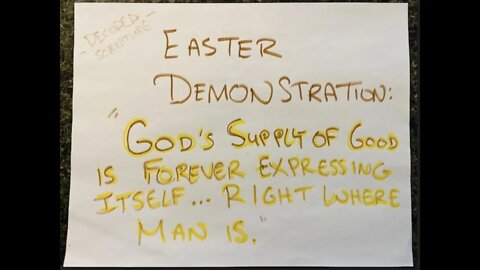 - DECODED
SCRIPTURE -
EASTER
DEMONSTRATION:
"GOD'S SUPPLY OF GOOD
IS FOREVER EXPRESSING
ITSELF... RIGHT WHERE
MAN IS."